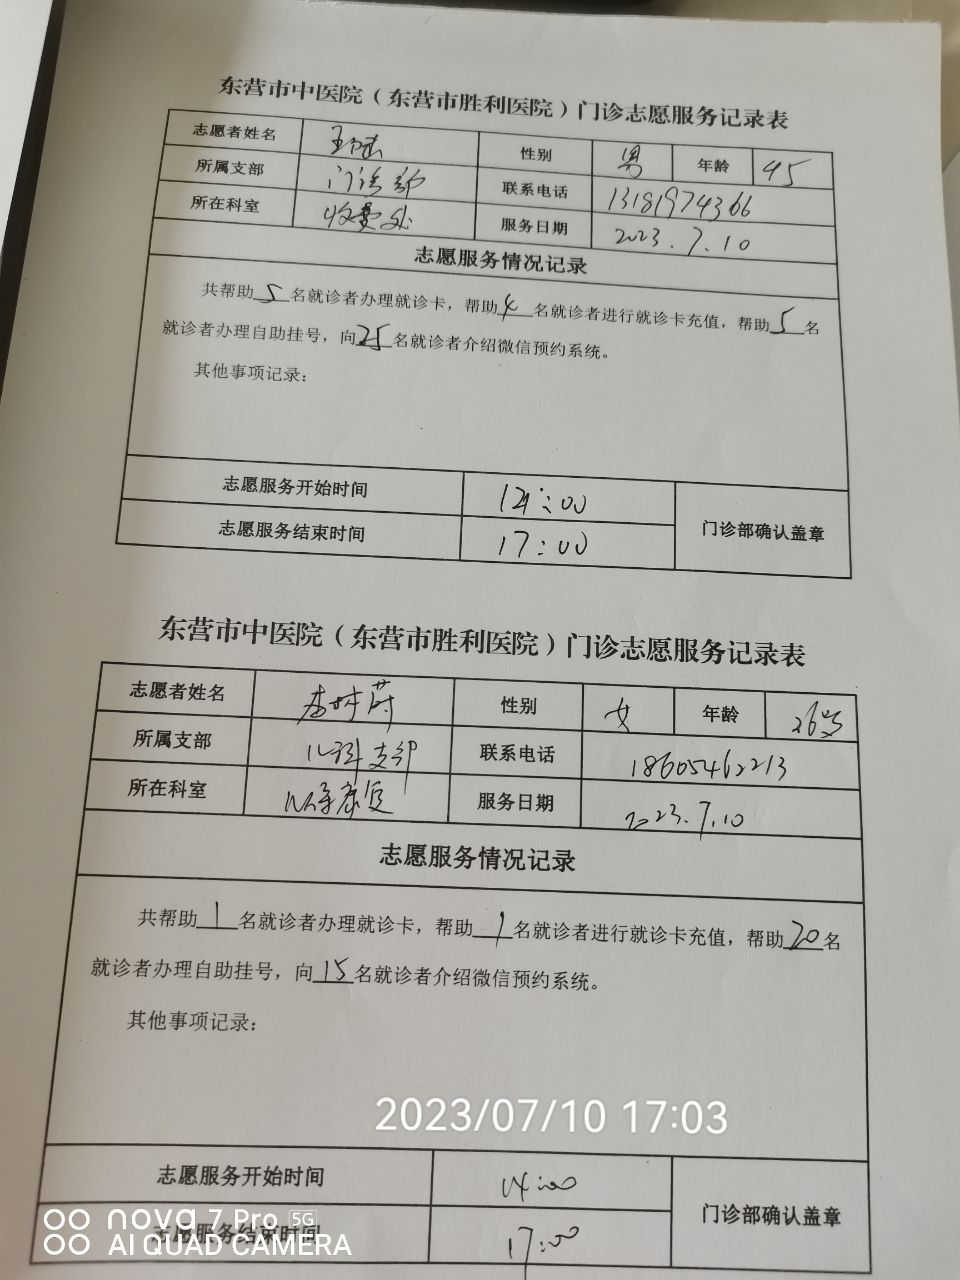 东营市中医院（东营市胜利医院）门诊志愿服务记录表
志愿者姓名 性别 男 年龄 45
所属支部 门诊部 联系电话 13181974366
所在科室 收费处 服务日期 2023.7.10
志愿服务情况记录
共帮助5名就诊者办理就诊卡，帮助4名就诊者进行就诊卡充值，帮助5名
就诊者办理自助挂号，向25名就诊者介绍微信预约系统。
其他事项记录：
志愿服务开始时间 14:00
门诊部确认盖章
志愿服务结束时间 17:00
东营市中医院（东营市胜利医院）门诊志愿服务记录表
志愿者姓名 性别 女 年龄 26岁
所属支部 儿科支部 联系电话 18605462213
所在科室 康复 服务日期 2023.7.10
志愿服务情况记录
共帮助1名就诊者办理就诊卡，帮助1名就诊者进行就诊卡充值，帮助20名
就诊者办理自助挂号，向15名就诊者介绍微信预约系统。
其他事项记录：
2023/07/10 17:03
志愿服务开始时间 14:00
门诊部确认盖章
志愿服务结束时间 17:00
nova 7 Pro 5G
AI QUAD CAMERA